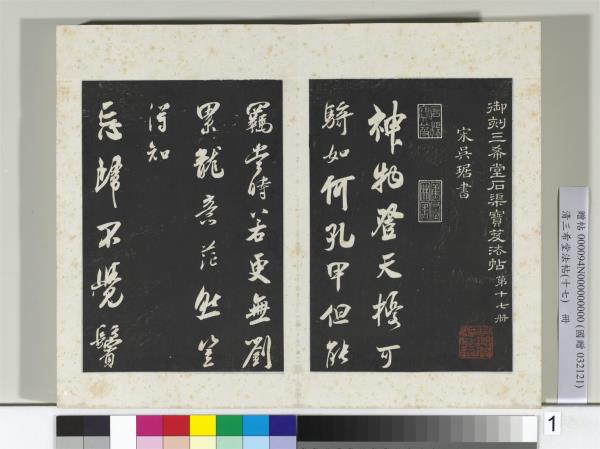 御刻三希堂石渠寶笈法帖 第十七冊
宋吳琚書
神物登天擾可
騎如何孔甲但能
羈當時若更無劉
累龍意茫然豈
得知
忘歸不覺鬢
贈帖 000094N000000000 (國贈 032121)
清三希堂法帖(十七) 冊
1